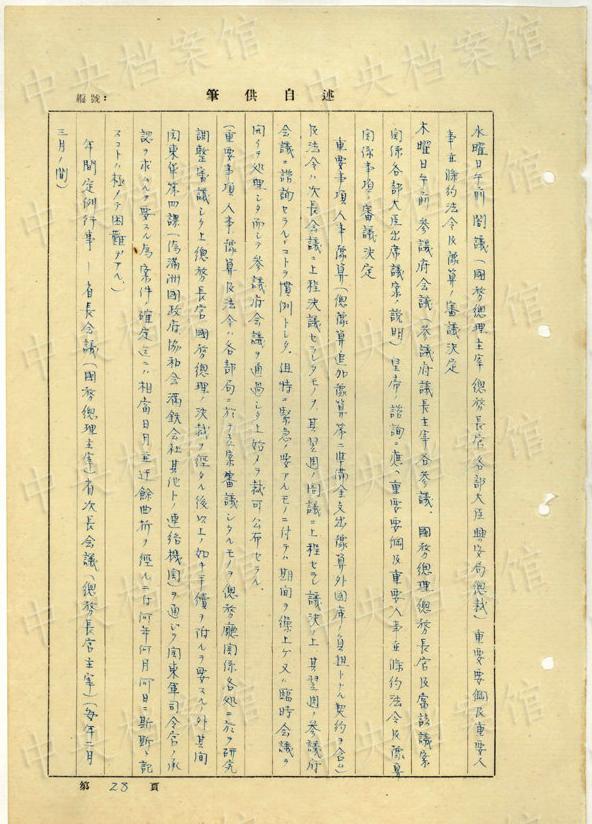 編號：
筆供自述
水曜日午前　閣議（國務總理主宰　總務長官各部大臣興安局總裁）重要要綱及重要人
事並條約法令及豫算ノ審議決定
木曜日午前　參議府会議（參議府議長主宰各參議、國務總理總務長官及當該議案
関係各部大臣出席議案ノ説明）皇帝ノ諮詢ニ應ヘ重要要綱及重要人事並條約法令及豫算
関係事項ノ審議決定
重要事項人事豫算（總豫算追加豫算第二準備金支出豫算外國庫ノ負担トナル契約ヲ含ム）
及法令ハ次長会議ニ上程決議セラレタモノヲ、其翌週ノ閣議ニ上程セラレ議決ノ上、其翌週ノ參議府
会議ニ諮詢セラルルコトヲ慣例トシタ、但特ニ緊急ノ要アルモノニ付テハ期間ヲ繰上ゲ又ハ臨時会議ヲ
開イテ処理シタ而シテ參議府会議ヲ通過シタ上始メテ裁可公布セラル、
（重要事項人事豫算及法令ハ各部局ニ於テ立案審議シタルモノヲ總務廳関係各処ニ於テ研究
調整審議シタ上總務長官國務總理ノ決裁ヲ經タル後以上ノ如キ手續ヲ附スルヲ要スル外其間
関東軍第四課（偽滿洲國政府協和会滿鉄会社其他トノ連絡機関）ヲ通ジテ関東軍司令官ノ承
認ヲ求ムルヲ要スル為案件ノ確定迄ニハ相當日月ヲ要シ迂餘曲折ヲ經ルニ付何年何月何日ニ斯斯ト記
スコトハ極メテ困難デアル、）
年間定例行事－省長会議（國務總理主宰）省次長会議（總務長官主宰）（毎年二月
三月ノ間）
第 28 頁
中央档案馆